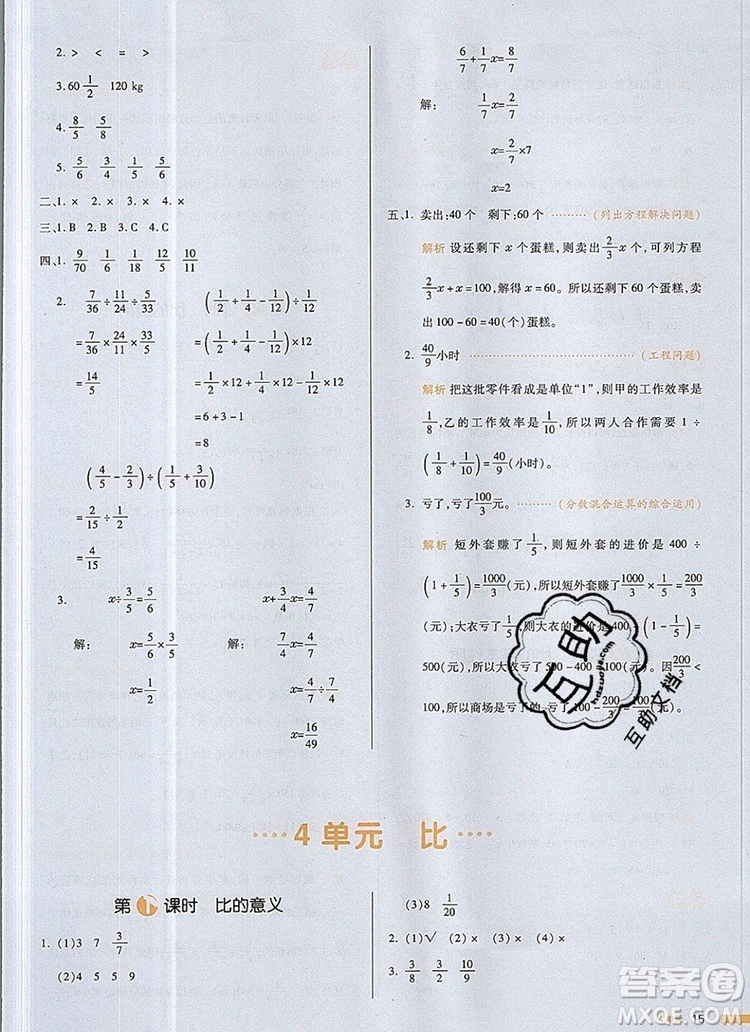 2. > < = >
3. 60 1/2 120 kg
4. 8/5 5/8
5. 15/4 4/15 5/6 5/6
二、1. × 2. × 3. × 4. ×
三、1. B 2. B 3. C 4. C
四、1. 9/70 1/6 12/35 10/11
2. 7/36÷11/24÷5/33
=7/36×24/11×33/5
=14/5
(1/2+1/4-1/12)÷1/12
=(1/2+1/4-1/12)×12
=1/2×12+1/4×12-1/12×12
=6+3-1
=8
(4/5-2/3)÷(1/5+3/10)
=2/15÷1/2
=4/15
3. x÷3/5=5/6
解: x=5/6×3/5
x=1/2
x+3/4x=4/7
解: 7/4x=4/7
x=4/7÷7/4
x=16/49
6/7+1/7x=8/7
解: 1/7x=2/7
x=2/7×7
x=2
五、1. 卖出:40 个 剩下:60 个 ………(列出方程解决问题)
解析 设还剩下 x 个蛋糕,则卖出 2/3x 个,可列方程
2/3x+x=100,解得 x=60。所以剩下 60 个蛋糕,卖
出 100-60=40(个)蛋糕。
2. 40/9小时 ………(工程问题)
解析 把这批零件看成是单位“1”,则甲的工作效率是
1/8,乙的工作效率是1/10,所以两人合作需要 1÷
(1/8+1/10)=40/9(小时)。
3. 亏了,亏了100/3元。………(分数混合运算的综合运用)
解析 短外套赚了1/5,则短外套的进价是 400÷
(1+1/5)=1000/3(元),所以短外套赚了1000/3×1/5=200/3
(元);大衣亏了1/5,则大衣的进价是 400÷(1-1/5)=
500(元),所以大衣亏了 500-400=100(元)。因200/3<
100,所以商场是亏了的,亏了 100-200/3=100/3(元)。
互助
hdzuoye.com
互助文档
4 单元 比
第1课时 比的意义
1. (1)3 7 3/7
(2)4 5 5 9
(3)8 1/20
2. (1)√ (2)× (3)× (4)×
3. 3/8 3/2 10/9
15
答案圈
MXQE.COM